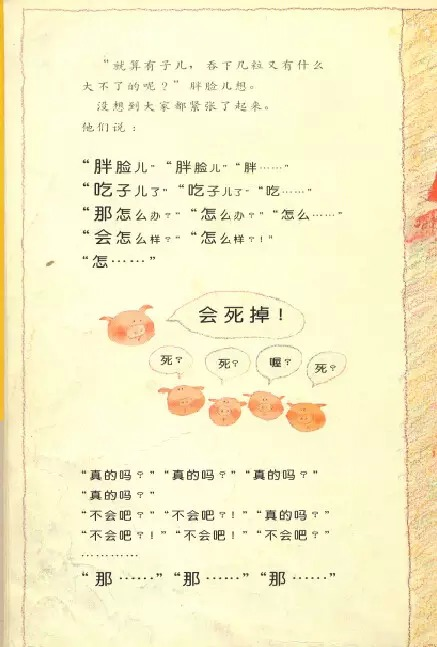 “就算有子儿，吞下几粒又有什么
大不了的呢？”胖脸儿想。
没想到大家都紧张了起来。
他们说：
“胖脸儿”“胖脸儿”“胖……”
“吃子儿了”“吃子儿了”“吃……”
“那怎么办？”“怎么办？”“怎么……”
“会怎么样？”“怎么样？！”
“怎……”
会死掉！
死？ 死？ 喔？ 死？
“真的吗？”“真的吗？”“真的吗？”
“真的吗？”
“不会吧？”“不会吧？！”“真的吗？”
“不会吧？！”“不会吧！”“不会吧？”
…………
“那……”“那……”“那……”